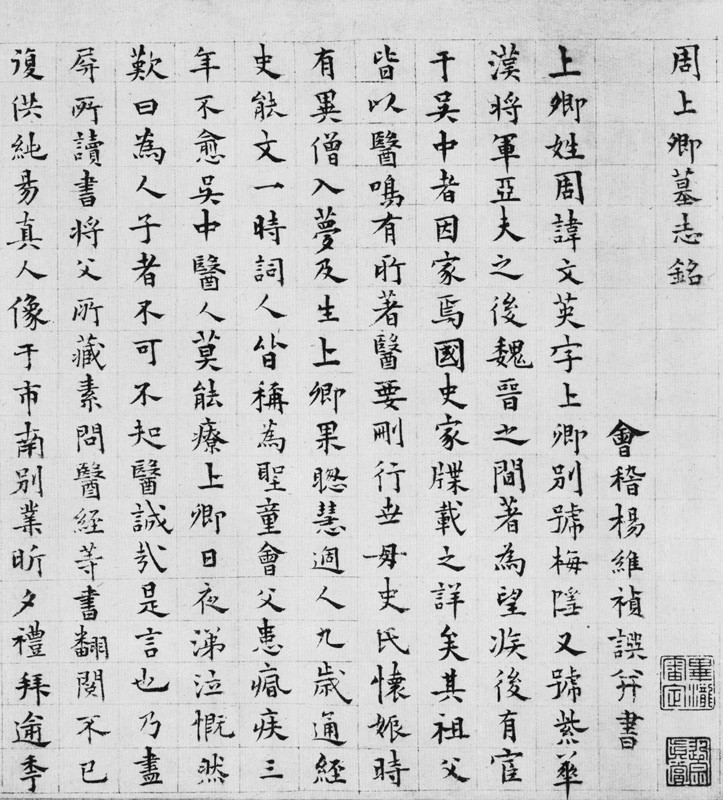 周上卿墓志銘
會稽楊維禎譔并書
上卿姓周諱文英字上卿別號梅隱又號紫華
漢將軍亞夫之後魏晉之間著為望族後有宦
于吳中者因家焉國史家牒載之詳矣其祖父
皆以醫鳴有所著醫要刪行世母史氏懷娠時
有異僧入夢及生上卿果聰慧過人九歲通經
史能文一時詞人皆稱為聖童會父患痼疾三
年不愈吳中醫人莫能療上卿日夜涕泣慨然
歎曰為人子者不可不知醫誠哉是言也乃盡
屏所讀書將父所藏素問醫經等書翻閱不已
復供純昜真人像于市南別業昕夕禮拜逾季